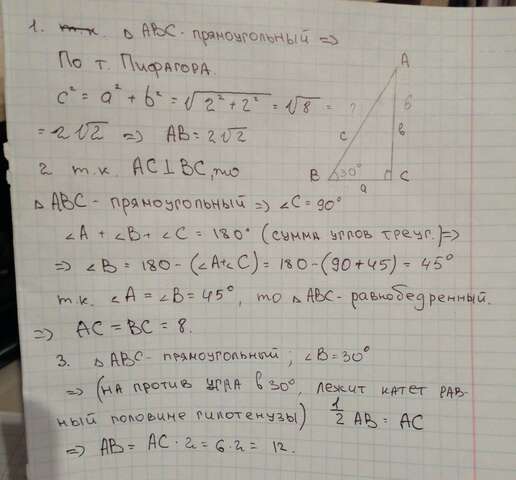 1. т.к. △ ABC - прямоугольный =>
По т. Пифагора.
c² = a² + b² = √2² + 2² = √8 = ?
= 2√2 => AB = 2√2
A
6
c
b
B
30°
C
a
2 т.к. AC ⊥ BC, то
△ ABC - прямоугольный => ∠C = 90°
∠A + ∠B + ∠C = 180° (сумма углов треуг.) =>
=> ∠B = 180 - (∠A + ∠C) = 180 - (90 + 45) = 45°
т.к. ∠A = ∠B = 45°, то △ ABC - равнобедренный.
=> AC = BC = 8.
3. △ ABC - прямоугольный; ∠B = 30°
=> (на против угла в 30°, лежит катет рав-
ный половине гипотенузы) 1/2 AB = AC
=> AB = AC · 2 = 6 · 2 = 12.